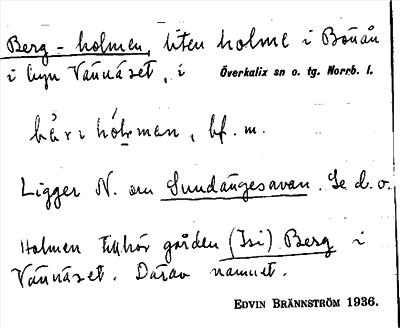 Berg-holmen, liten holme i Bönån
i byn Vännäset, i Överkalix sn o. tg. Norrb. l.
bf. m.
Ligger N. om Sundängesavan. Se d. o.
Holmen tillhör gården (Isi) Berg i
Vännäset. Därav namnet.
EDVIN BRÄNNSTRÖM 1936.